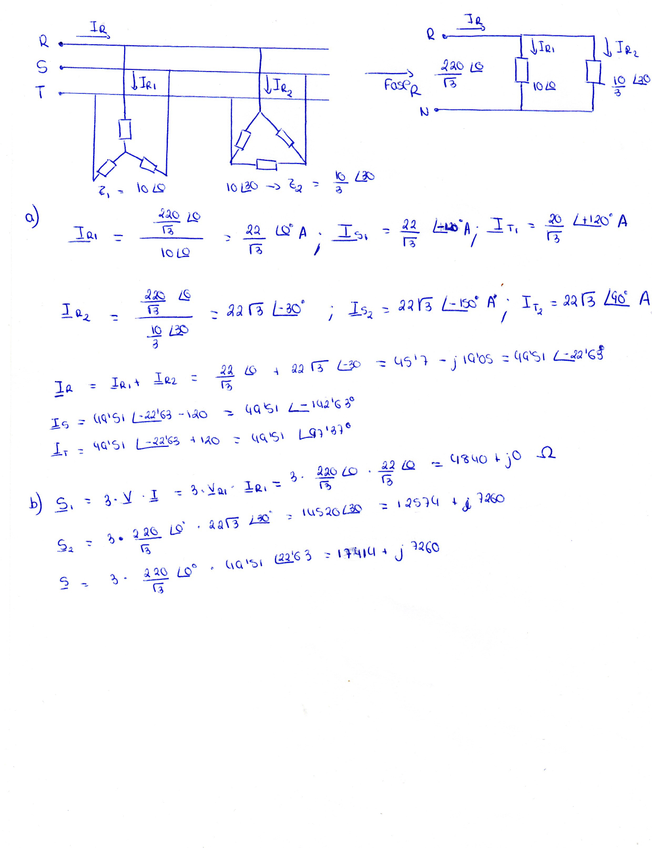 I_R
R
S
T
I_R1
I_R2
Z_1 = 10∠0
10∠30 → Z_2 = 10/3 ∠30
Fase R
I_R
R
I_R1
I_R2
220/√3 ∠0
10∠0
10/3 ∠30
N
a) I_R1 = (220/√3 ∠0) / (10∠0) = 22/√3 ∠0° A ; I_S1 = 22/√3 ∠-120° A ; I_T1 = 20/√3 ∠+120° A
I_R2 = (220/√3 ∠0) / (10/3 ∠30) = 22√3 ∠-30° ; I_S2 = 22√3 ∠-150° A ; I_T2 = 22√3 ∠90° A
I_R = I_R1 + I_R2 = 22/√3 ∠0 + 22√3 ∠-30 = 45'7 - j19'05 = 49'51 ∠-22'63°
I_S = 49'51 ∠-22'63 -120 = 49'51 ∠-142'63°
I_T = 49'51 ∠-22'63 +120 = 49'51 ∠97'37°
b) S_1 = 3·V·I = 3·V_R1·I_R1 = 3· 220/√3 ∠0 · 22/√3 ∠0 = 4840 + j0 Ω
S_2 = 3· 220/√3 ∠0° · 22√3 ∠30° = 14520∠30 = 12574 + j 7260
S = 3· 220/√3 ∠0° · 49'51 ∠22'63 = 17414 + j 7260